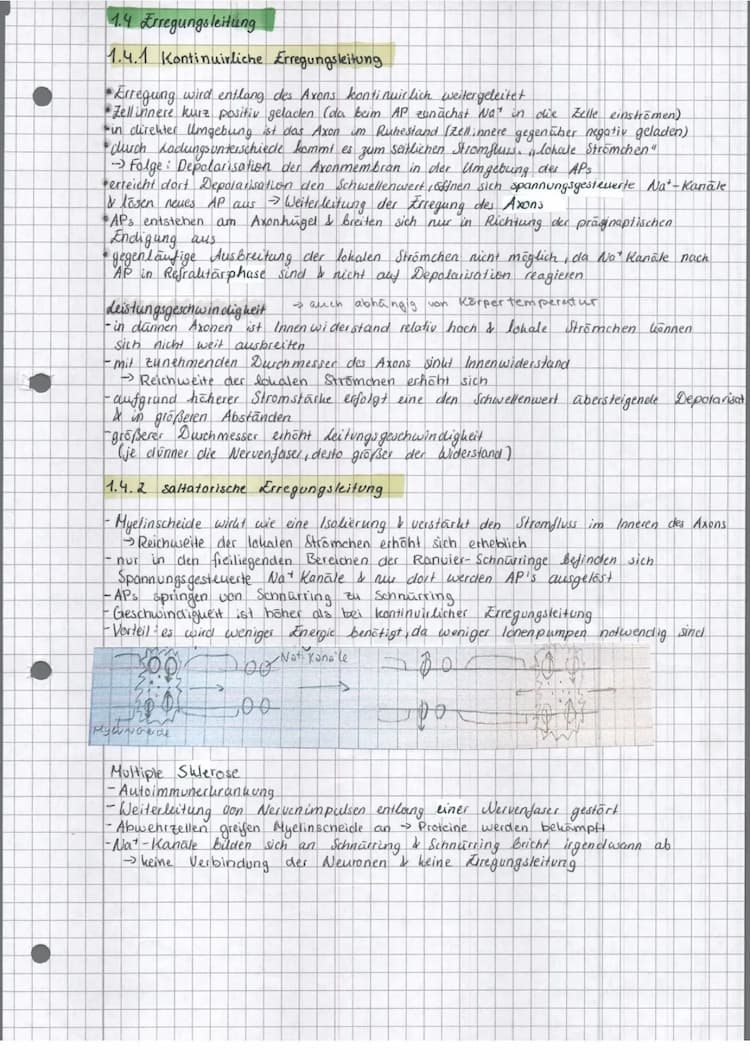 1.4 Erregungsleitung
1.4.1 Kontinuirliche Erregungsleitung
• Erregung wird entlang des Axons kontinuirlich weitergeleitet
• Zellinnere kurz positiv geladen (da beim AP zunächst Na⁺ in die Zelle einströmen)
• in direkter Umgebung ist das Axon im Ruhestand (Zellinnere gegenüber negativ geladen)
• durch Ladungsunterschiede kommt es zum seitlichen Stromfluss. „lokale Strömchen"
→ Folge: Depolarisation der Axonmembran in der Umgebung des APs
• erreicht dort Depolarisation den Schwellenwert, öffnen sich spannungsgesteuerte Na⁺-Kanäle
& lösen neues AP aus → Weiterleitung der Erregung des Axons
• APs entstehen am Axonhügel & breiten sich nur in Richtung der präsynaptischen
Endigung aus
• gegenläufige Ausbreitung der lokalen Strömchen nicht möglich, da Na⁺ Kanäle nach
AP in Refraktärphase sind & nicht auf Depolarisation reagieren
Leistungsgeschwindigkeit → auch abhängig von Körpertemperatur
- in dünnen Axonen ist Innenwiderstand relativ hoch & lokale Strömchen können
sich nicht weit ausbreiten
- mit zunehmenden Durchmesser des Axons sinkt Innenwiderstand
→ Reichweite der lokalen Strömchen erhöht sich
- aufgrund höherer Stromstärke erfolgt eine den Schwellenwert übersteigende Depolarisat
& in größeren Abständen
- größerer Durchmesser erhöht Leitungsgeschwindigkeit
(je dünner die Nervenfaser, desto größer der Widerstand)
1.4.2 saltatorische Erregungsleitung
- Myelinscheide wirkt wie eine Isolierung & verstärkt den Stromfluss im Inneren des Axons
→ Reichweite der lokalen Strömchen erhöht sich erheblich
- nur in den freiliegenden Bereichen der Ranvier-Schnürringe befinden sich
Spannungsgesteuerte Na⁺ Kanäle & nur dort werden AP's ausgelöst
- APs springen von Schnürring zu Schnürring
- Geschwindigkeit ist höher als bei kontinuirlicher Erregungsleitung
- Vorteil: es wird weniger Energie benötigt, da weniger Ionenpumpen notwendig sind
Na⁺ Kanäle
Multiple Sklerose
- Autoimmunerkrankung
- Weiterleitung von Nervenimpulsen entlang einer Nervenfaser gestört
- Abwehrzellen greifen Myelinscheide an → Proteine werden bekämpft
- Na⁺-Kanäle bilden sich an Schnürring & Schnürring bricht irgendwann ab
→ keine Verbindung der Neuronen & keine Erregungsleitung